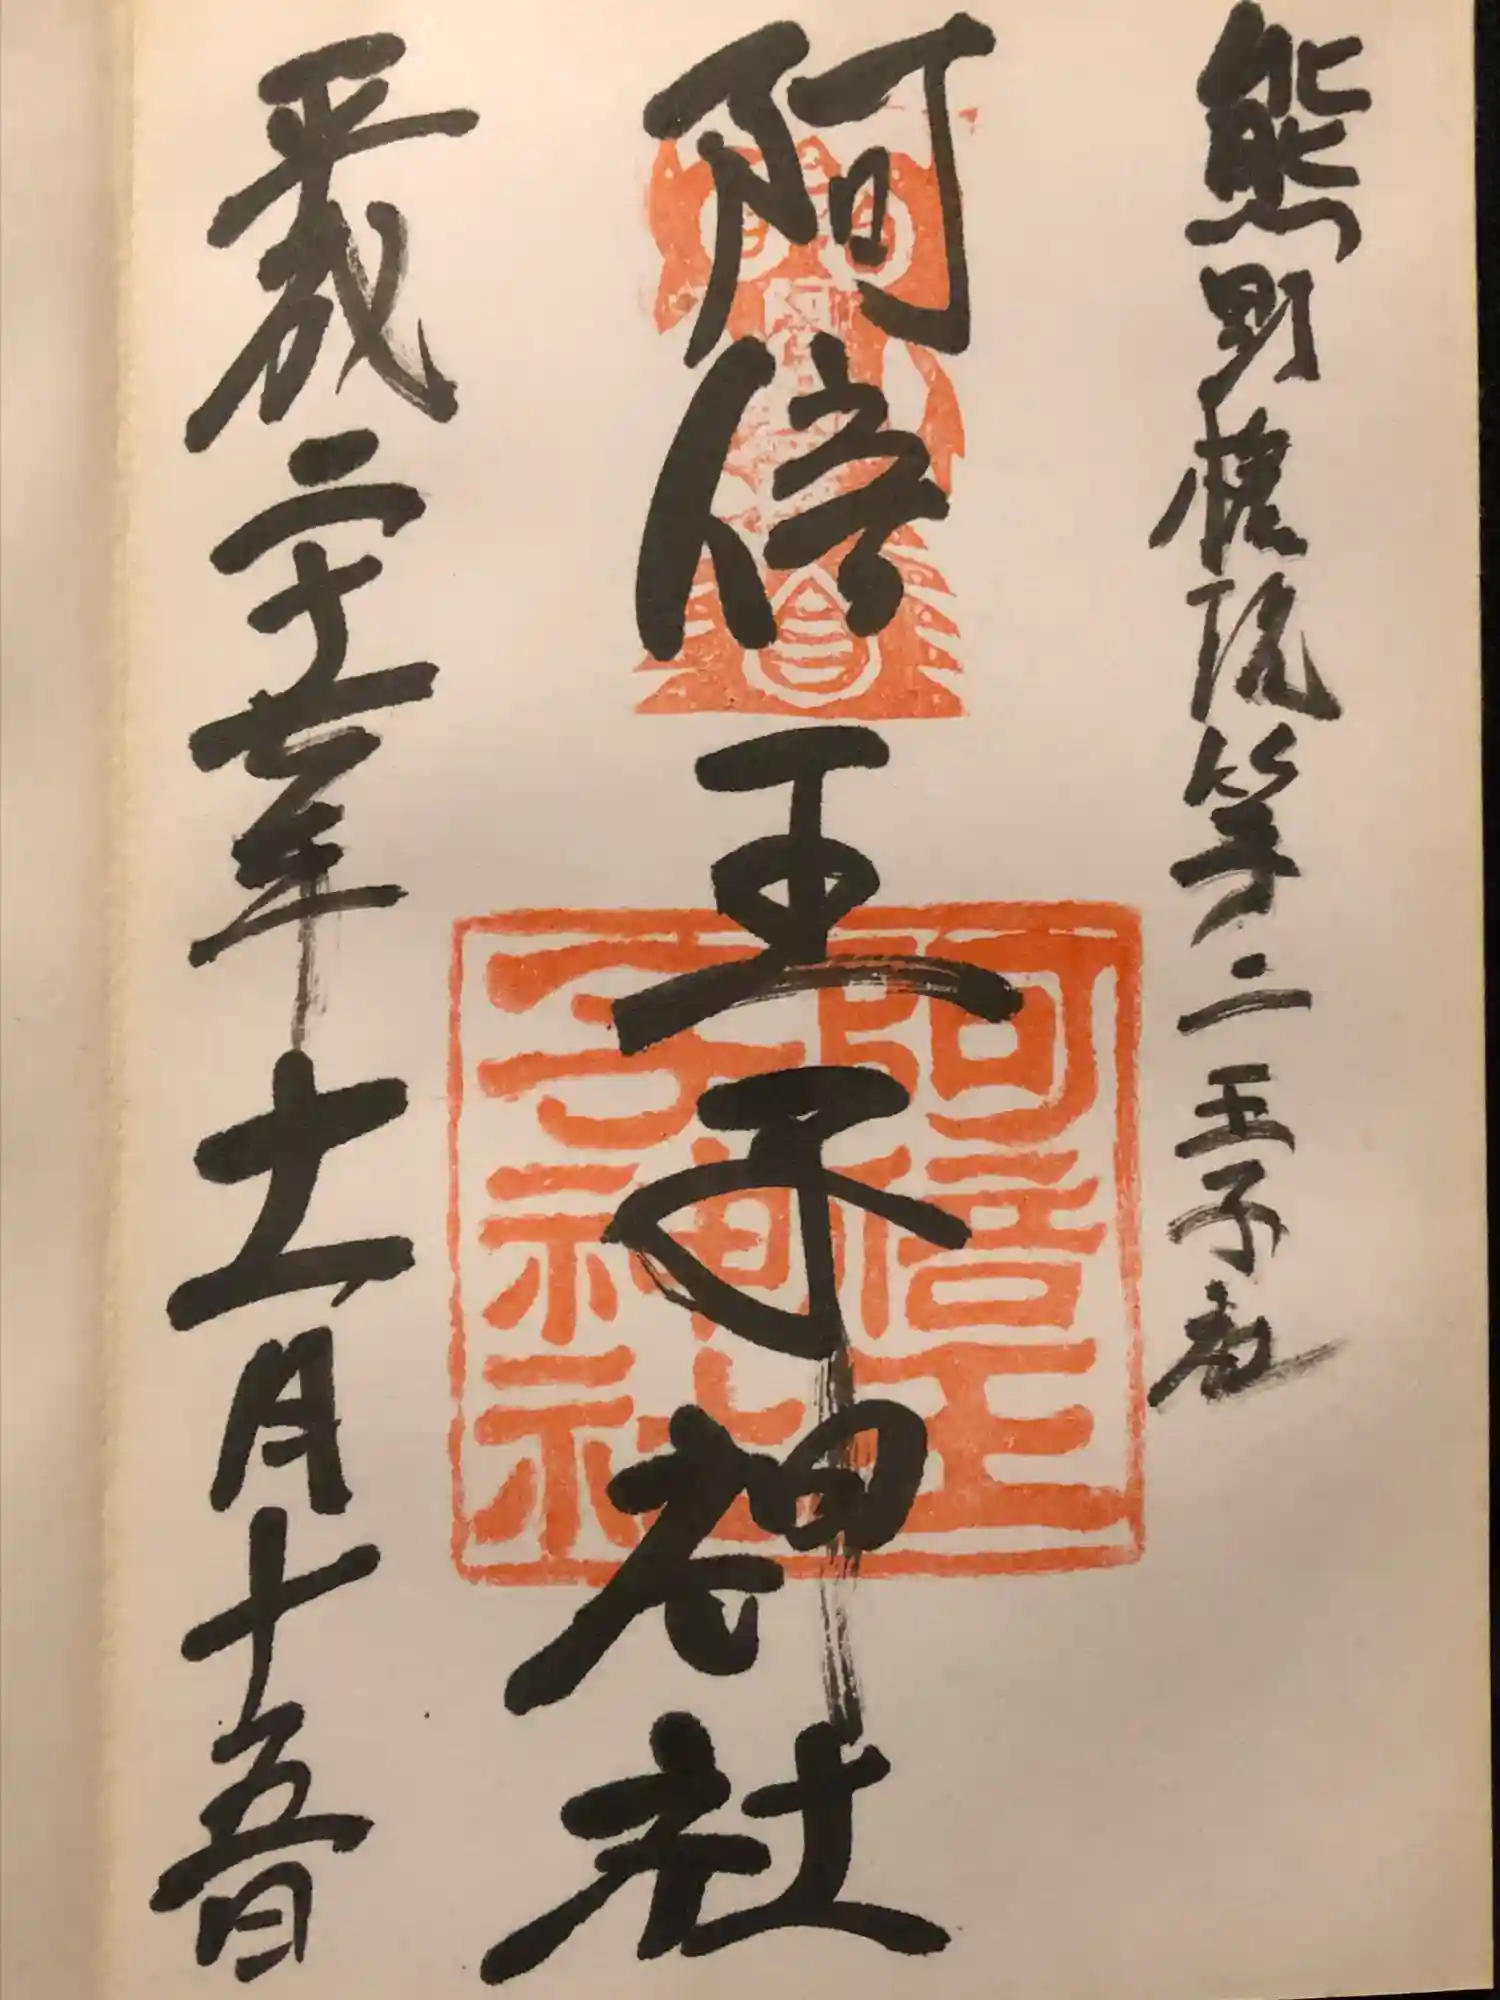 熊野権現第二王子社
阿倍王子神社
平成二十七年十一月十五日
阿倍王
子神社